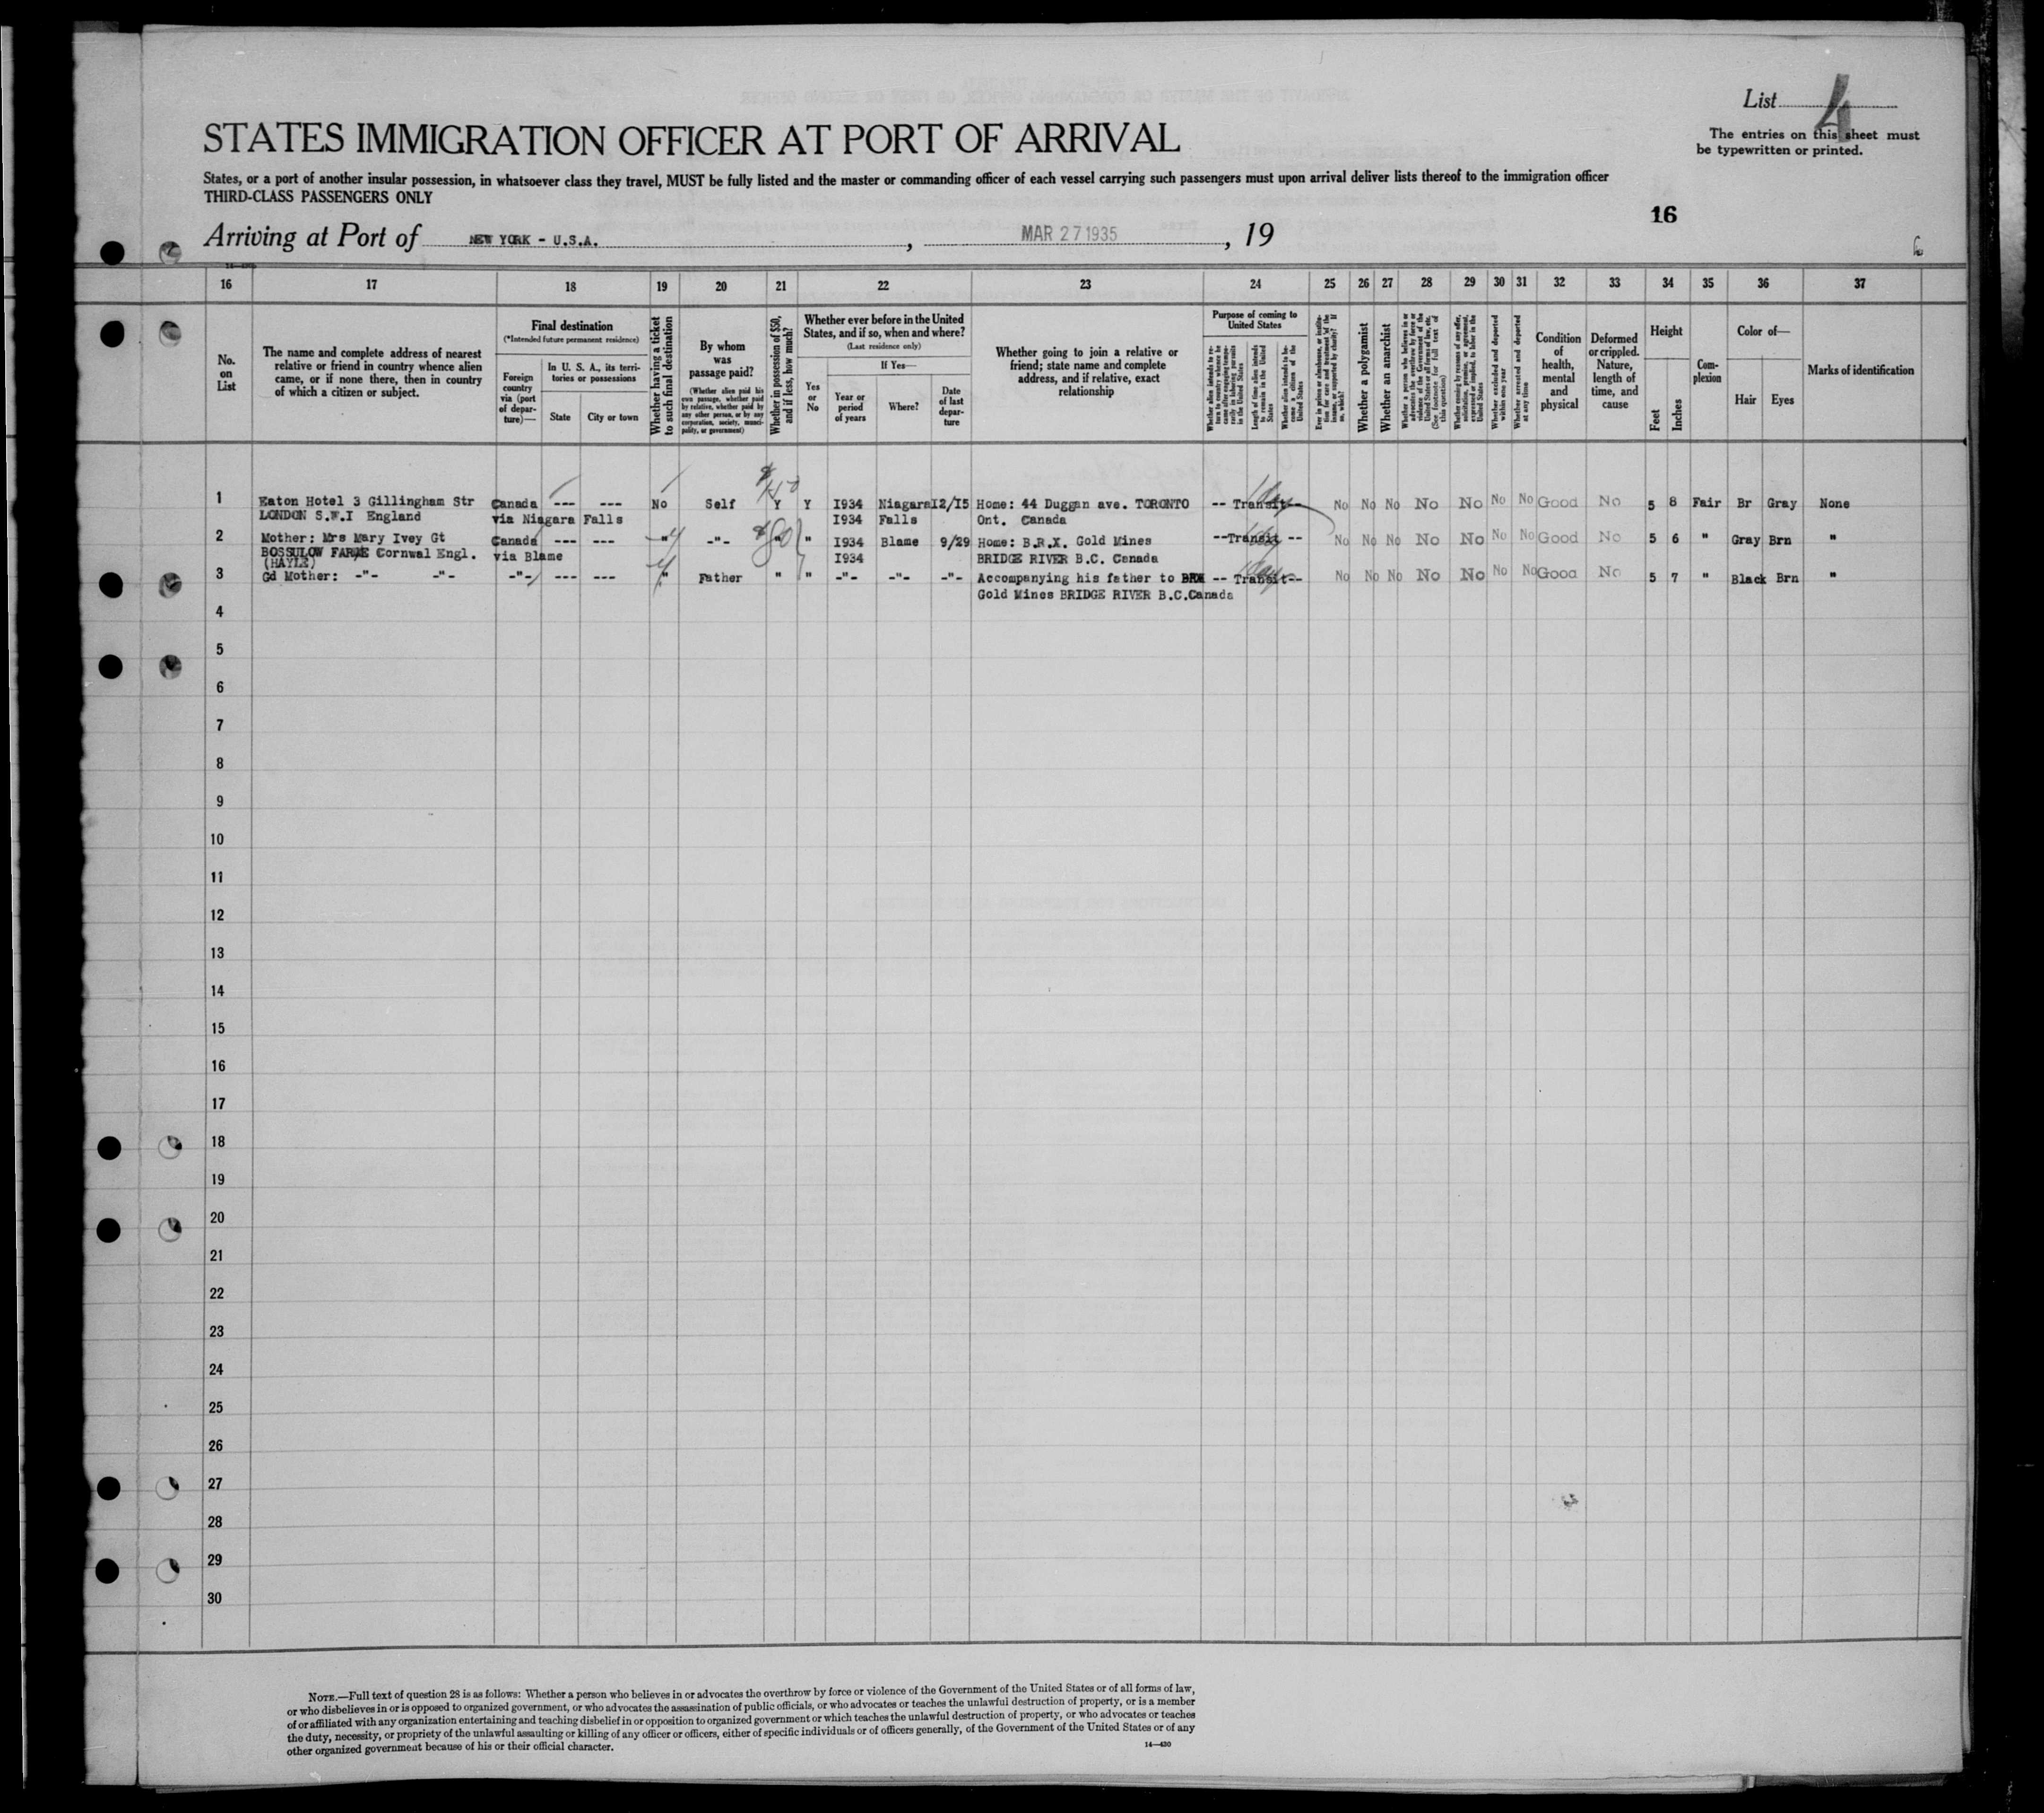 List 4
The entries on this sheet must
be typewritten or printed.
STATES IMMIGRATION OFFICER AT PORT OF ARRIVAL
States, or a port of another insular possession, in whatsoever class they travel, MUST be fully listed and the master or commanding officer of each vessel carrying such passengers must upon arrival deliver lists thereof to the immigration officer
THIRD-CLASS PASSENGERS ONLY
16
Arriving at Port of NEW YORK - U.S.A. , MAR 27 1935 , 19
16 17 18 19 20 21 22 23 24 25 26 27 28 29 30 31 32 33 34 35 36 37
No.
on
List
The name and complete address of nearest
relative or friend in country whence alien
came, or if none there, then in country
of which a citizen or subject.
Final destination
(*Intended future permanent residence)
Foreign
country
via (port
of depar-
ture)—
In U. S. A., its terri-
tories or possessions
State
City or town
Whether having a ticket
to such final destination
By whom
was
passage paid?
(Whether alien paid his
own passage, whether paid
by relative, whether paid by
any other person, or by any
corporation, society, munici-
pality, or government)
Whether in possession of $50,
and if less, how much?
Whether ever before in the United
States, and if so, when and where?
(Last residence only)
Yes
or
No
If Yes—
Year or
period
of years
Where?
Date
of last
depar-
ture
Whether going to join a relative or
friend; state name and complete
address, and if relative, exact
relationship
Purpose of coming to
United States
Length of time alien intends
to remain in the United
States
Whether alien intends to be-
come a citizen of the
United States
Whether a polygamist
Whether an anarchist
(See footnote for full text of
this question)
Whether excluded and deported
within one year
Whether arrested and deported
at any time
Condition
of
health,
mental
and
physical
Deformed
or crippled.
Nature,
length of
time, and
cause
Height
Feet
Inches
Com-
plexion
Color of—
Hair
Eyes
Marks of identification
1 Eaton Hotel 3 Gillingham Str Canada --- --- No Self Y Y I934 Niagara I2/I5 Home: 44 Duggan ave. TORONTO -- Transit-- No No No No No No No Good No 5 8 Fair Br Gray None
LONDON S.W.I England via Niagara Falls I934 Falls Ont. Canada
2 Mother: Mrs Mary Ivey Gt Canada --- --- " -"- $80 " " I934 Blame 9/29 Home: B.R.X. Gold Mines --Transit -- No No No No No No No Good No 5 6 " Gray Brn "
BOSSULOW FARME Cornwal Engl. via Blame I934 BRIDGE RIVER B.C. Canada
(HAYLE)
3 Gd Mother: -"- -"- -"- --- --- " Father " " -"- -"- -"- Accompanying his father to BRX -- Transit-- No No No No No No No Good No 5 7 " Black Brn "
Gold Mines BRIDGE RIVER B.C.Canada
4
5
6
7
8
9
10
11
12
13
14
15
16
17
18
19
20
21
22
23
24
25
26
27
28
29
30
NOTE.—Full text of question 28 is as follows: Whether a person who believes in or advocates the overthrow by force or violence of the Government of the United States or of all forms of law,
or who disbelieves in or is opposed to organized government, or who advocates the assassination of public officials, or who advocates or teaches the unlawful destruction of property, or is a member
of or affiliated with any organization entertaining and teaching disbelief in or opposition to organized government or which teaches the unlawful destruction of property, or who advocates or teaches
the duty, necessity, or propriety of the unlawful assaulting or killing of any officer or officers, either of specific individuals or of officers generally, of the Government of the United States or of any
other organized government because of his or their official character.
14—430